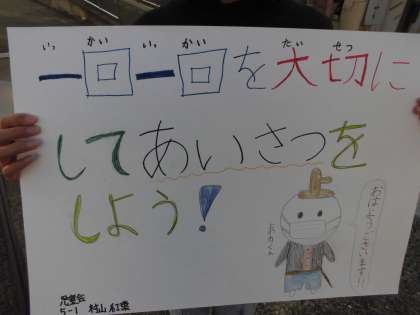 いっ かい いっ かい たい せつ
一回一回を大切に
してあいさつを
しよう!
おはようございます!!
児童会
5-1 村山 紅葉